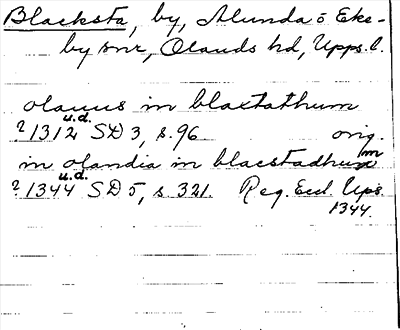 Blacksta, by, Alunda o Eke-
by snr, Olands hd, Upps. l.
olauus in blaxtathum
u.d.
? 1312 SD 3, s. 96 orig.
in olandia in blaestadhum
u.d.
? 1344 SD 5, s. 321. Reg. Eccl. Ups
1344.